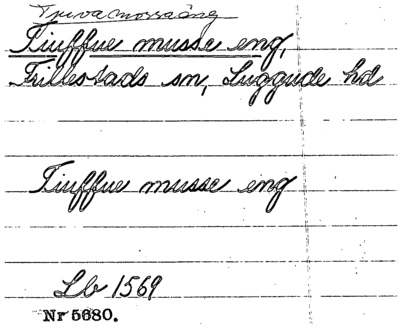 Tjuvamossaäng
Tiuffue musse eng,
Frillestads sn, Luggude hd
Tiuffue musse eng
Lb 1569
Nr 5680.